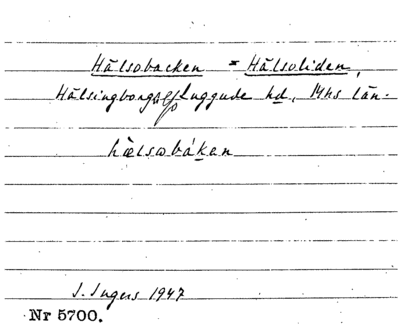 Hälsobacken = Hälsoliden,
Hälsingborgs lfs Luggude hd, Mhs län.
hælsωbákan
I. Ingers 1947
Nr 5700.